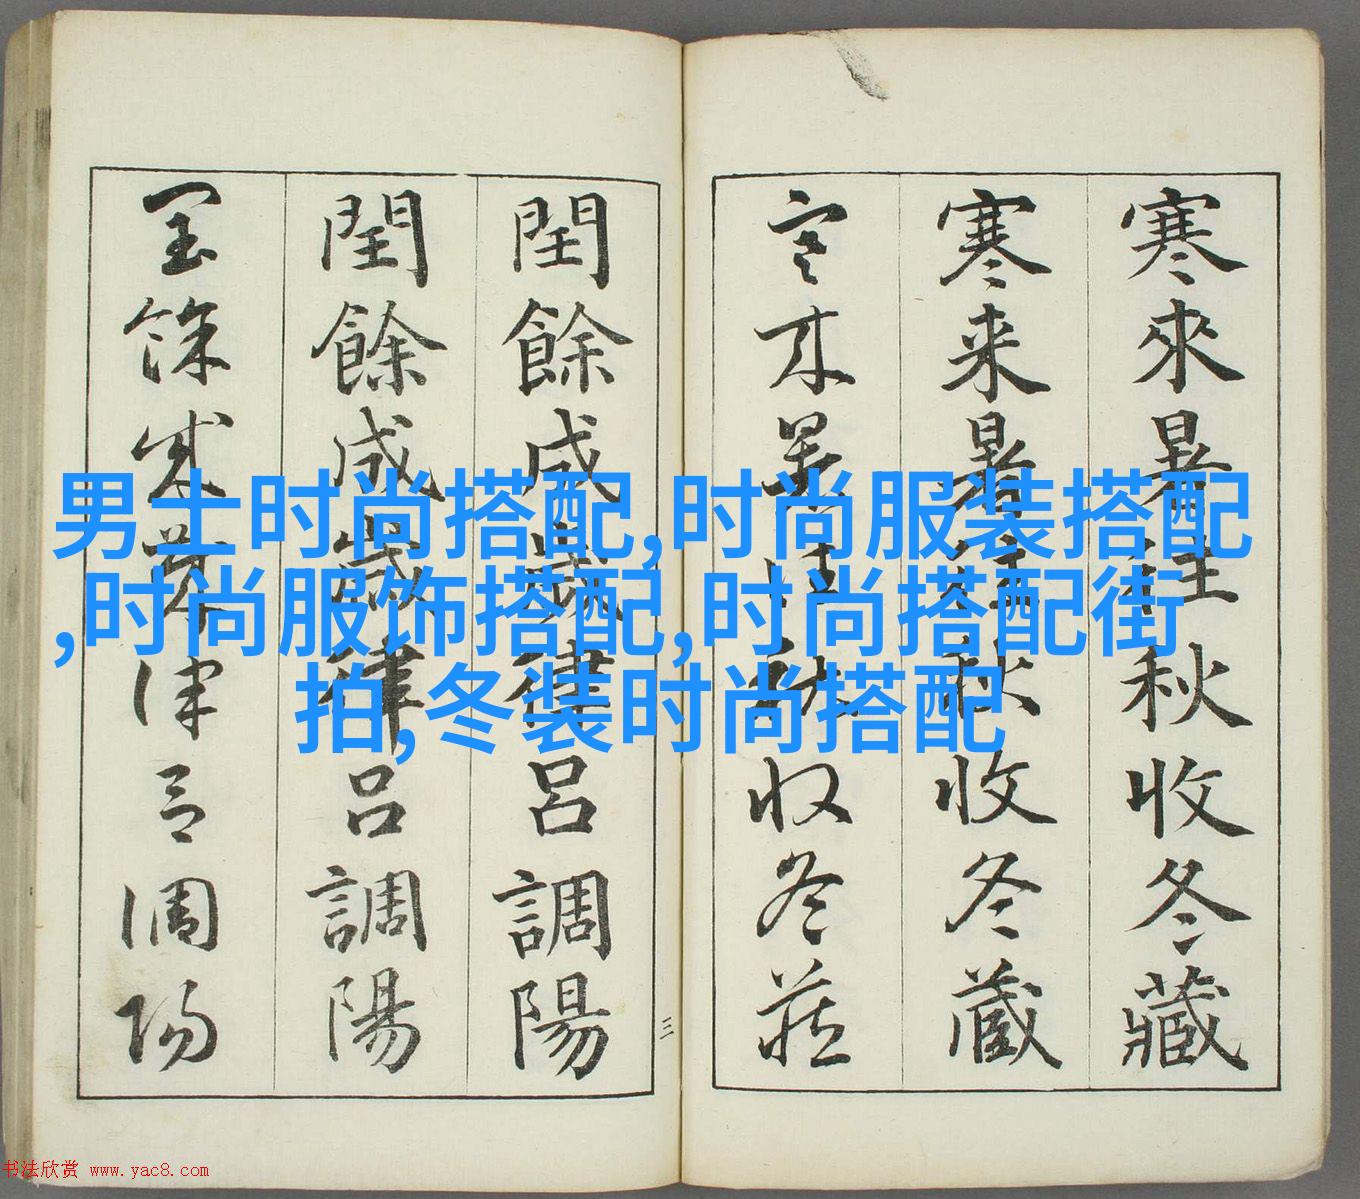 寒來暑往秋收冬藏
寒来暑往秋收冬藏
寒来暑往秋收冬藏
閏餘成歲律呂調陽
閏餘成歲律呂調陽
閏餘成歲律呂調陽
三
男士时尚搭配,时尚服装搭配
,时尚服饰搭配,时尚搭配街
拍,冬装时尚搭配
书法欣赏 www.yac8.com